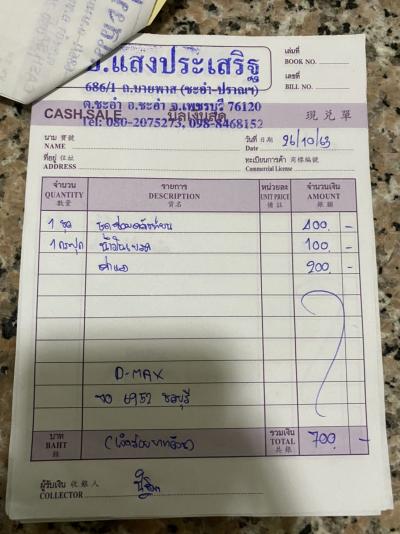 ช.แสงประเสริฐ
686/1 ถ.บายพาส (ชะอำ-ปราณฯ)
ต.ชะอำ อ.ชะอำ จ.เพชรบุรี 76120
Tel: 080-2075273, 098-8468152
เล่มที่
BOOK NO.
เลขที่
BILL NO.
CASH SALE บิลเงินสด 現兌單
นาม 寶號
NAME
วันที่ 日期 26/10/63
Date
ที่อยู่ 住址
ADDRESS
ทะเบียนการค้า 商標編號
Commercial License
จำนวน รายการ หน่วยละ จำนวนเงิน
QUANTITY DESCRIPTION UNIT PRICE AMOUNT
數量 貨名 備註 銀額
1 ชุด ชุดซ่อมคลัทช์บน 400 -
1 กระปุก น้ำมันเบรค 100 -
ค่าแรง 200 -
D-MAX
6952 ชลบุรี
บาท รวมเงิน
BAHT (เจ็ดร้อยบาทถ้วน) TOTAL 700 -
銖 共銀
ผู้รับเงิน 收銀人
COLLECTOR